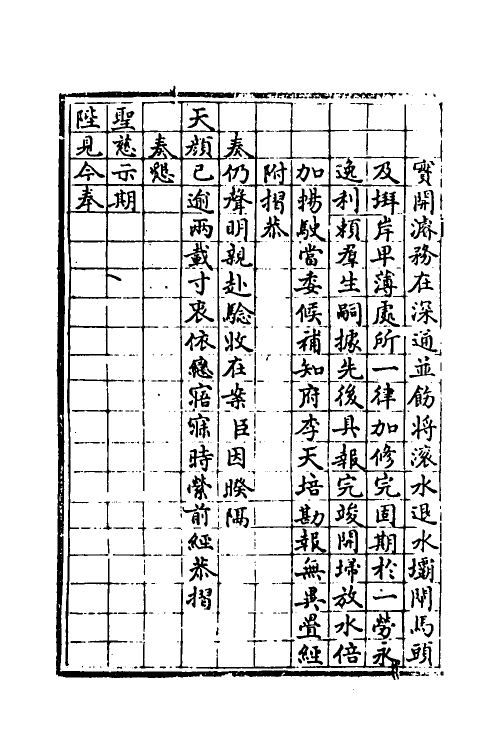 實開濬務在深通並飭將滾水退水壩閘馬頭
及堋岸卑薄處所一律加修完固期於一勞永
逸利賴羣生嗣據先後具報完竣開埽放水倍
加揚駛當委候補知府李天培勘報無異疊經
附摺恭
奏仍聲明親赴驗收在案臣因暌隔
天顏已逾兩載寸衷依戀寤寐時縈前經恭摺
奏懇
聖慈示期
陛見今奉